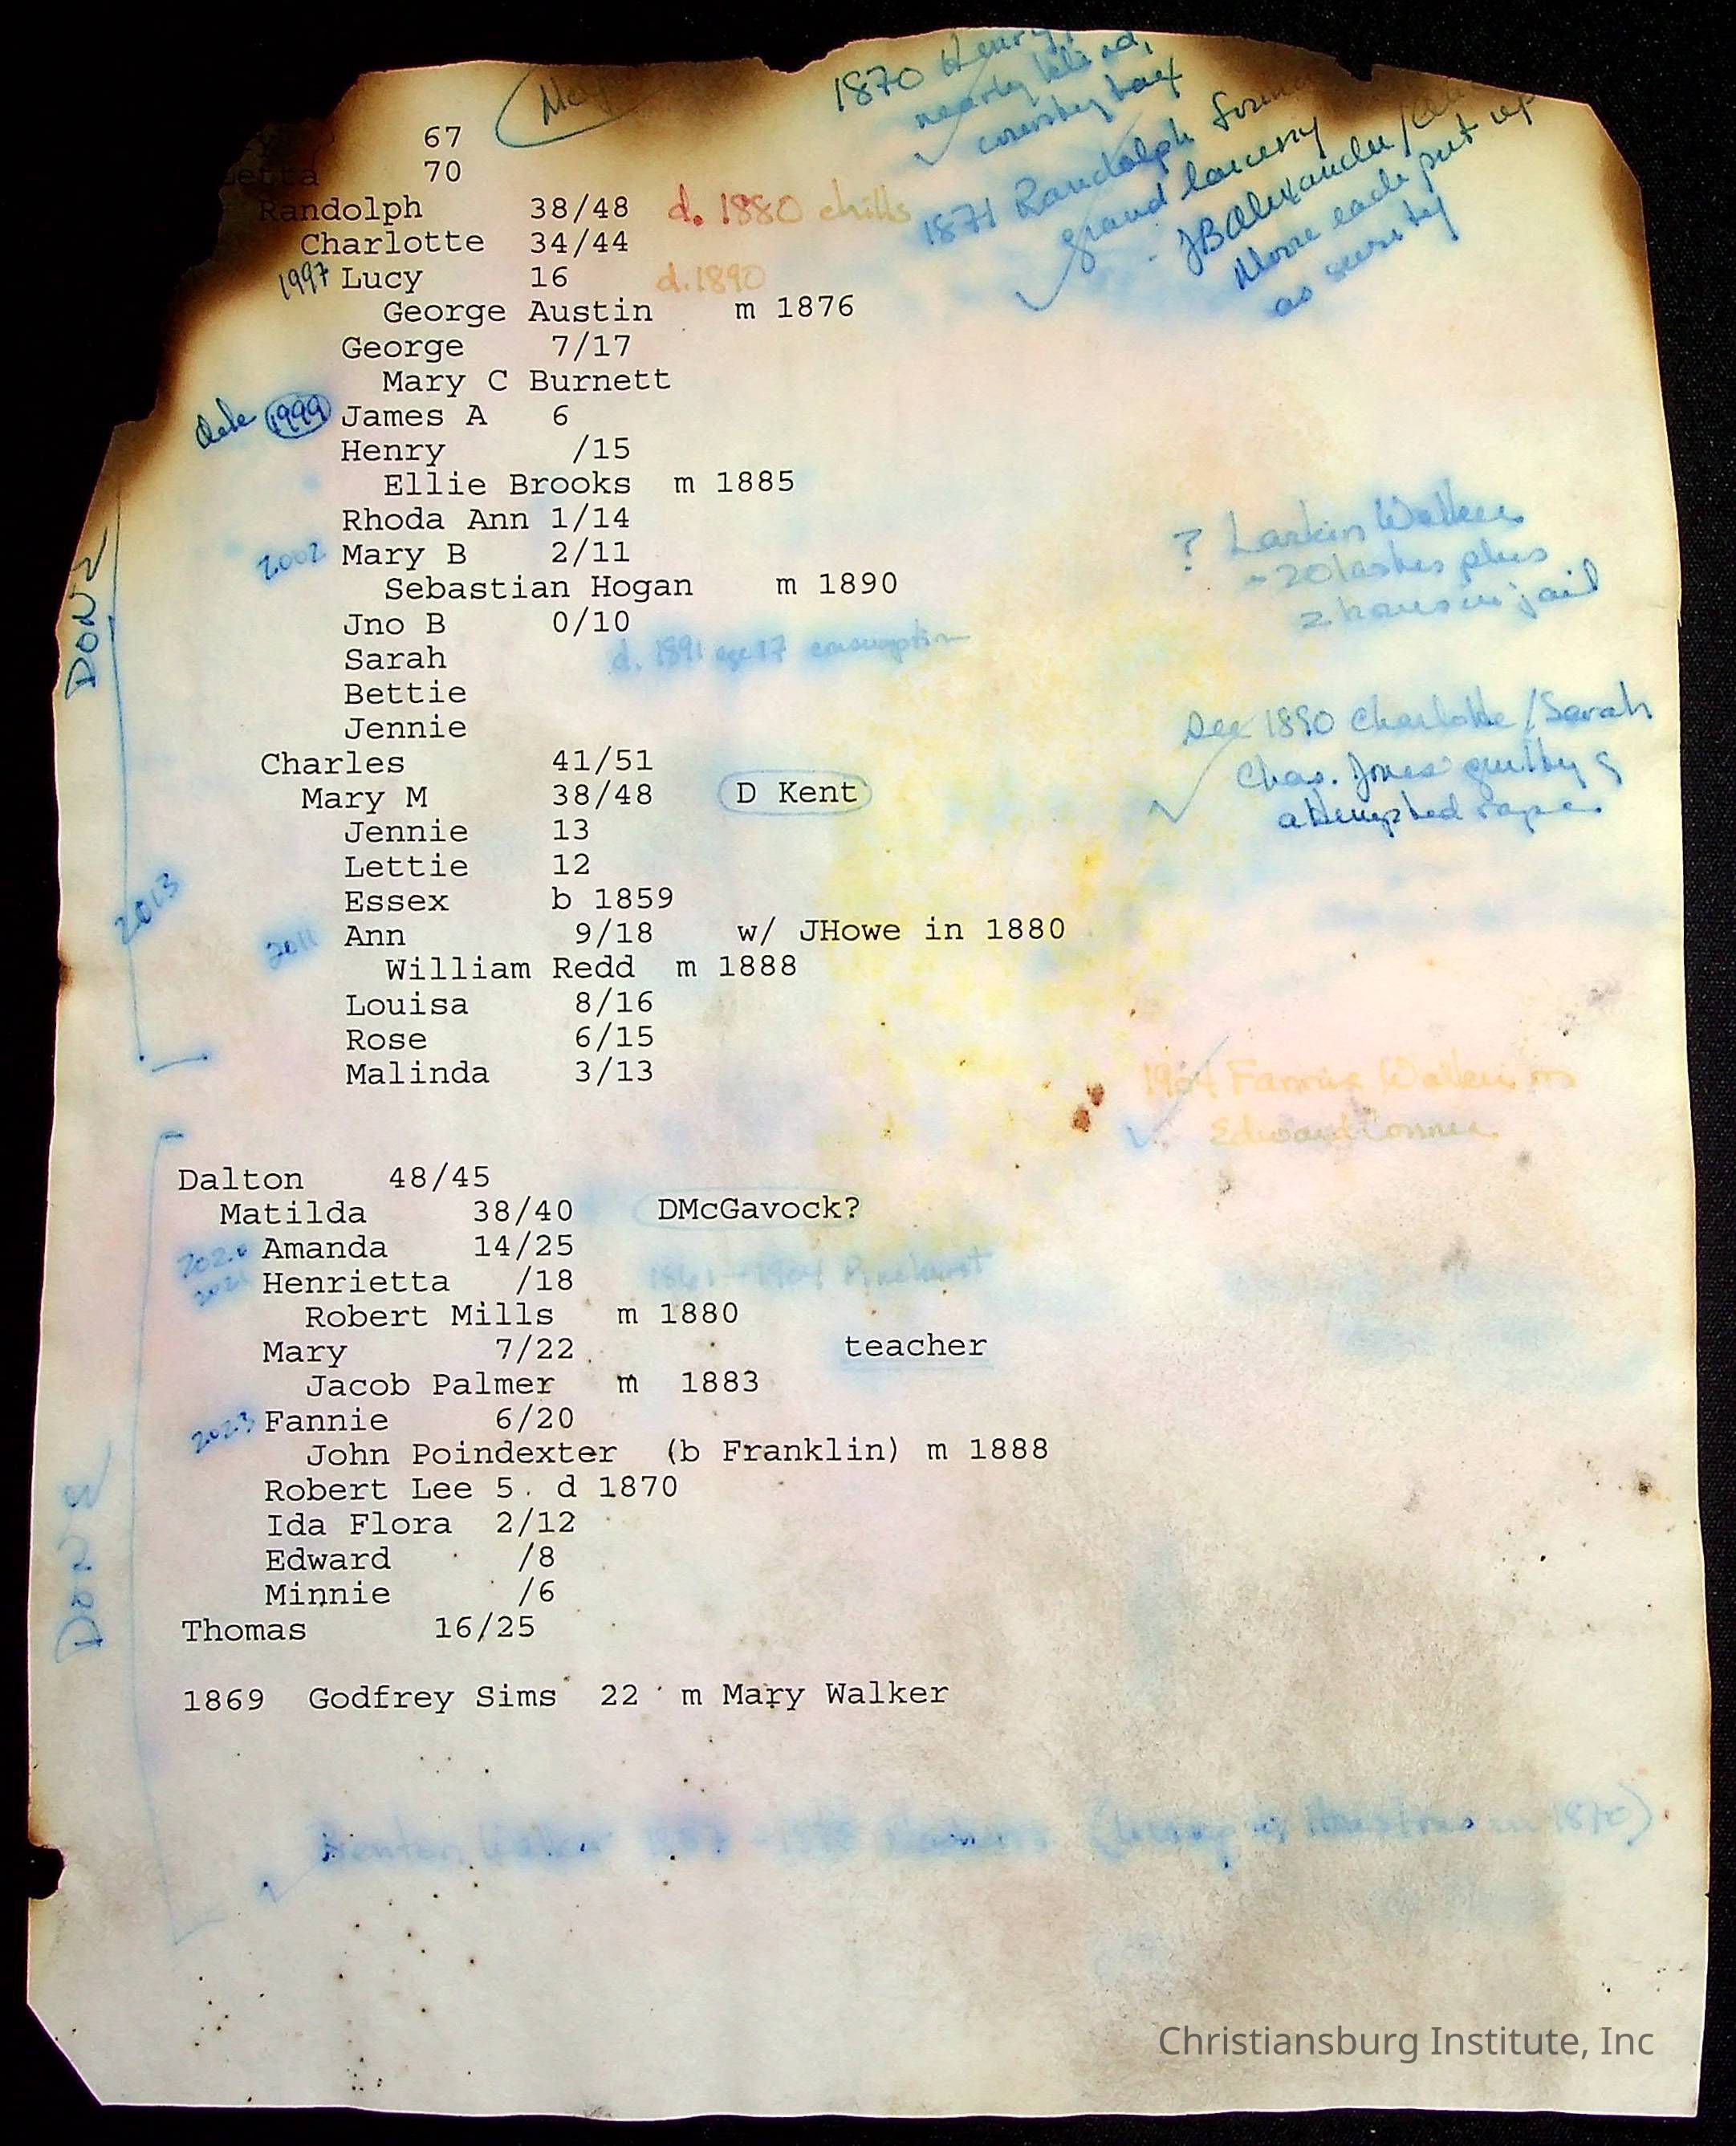 1870 Henry
nearly blind,
county
67
70
Randolph 38/48 d. 1880 chills
1871 Randolph found
grand larceny
JBAlexander/
Moore each put up
as security
Charlotte 34/44
1997 Lucy 16 d.1890
George Austin m 1876
George 7/17
Mary C Burnett
date 1999 James A 6
Henry /15
Ellie Brooks m 1885
Rhoda Ann 1/14
? Larkin Walker
- 20 lashes plus
2 hours in jail
2002 Mary B 2/11
Sebastian Hogan m 1890
DONE
Jno B 0/10
d. 1891 age 17 consumption
Sarah
Bettie
Jennie
See 1890 Charlotte/Sarah
Chas. Jones guilty of
attempted rape
Charles 41/51
Mary M 38/48 D Kent
Jennie 13
Lettie 12
2013
Essex b 1859
2011 Ann 9/18 w/ JHowe in 1880
William Redd m 1888
Louisa 8/16
Rose 6/15
Malinda 3/13
1904 Fannie Walker m
Edward Conner
Dalton 48/45
Matilda 38/40 DMcGavock?
2020 Amanda 14/25
2021 Henrietta /18 1861-1904 Pinehurst
Robert Mills m 1880
Mary 7/22 teacher
Jacob Palmer m 1883
2023 Fannie 6/20
John Poindexter (b Franklin) m 1888
Robert Lee 5 d 1870
DONE
Ida Flora 2/12
Edward /8
Minnie /6
Thomas 16/25
1869 Godfrey Sims 22 m Mary Walker
Walker in 1870)
Christiansburg Institute, Inc